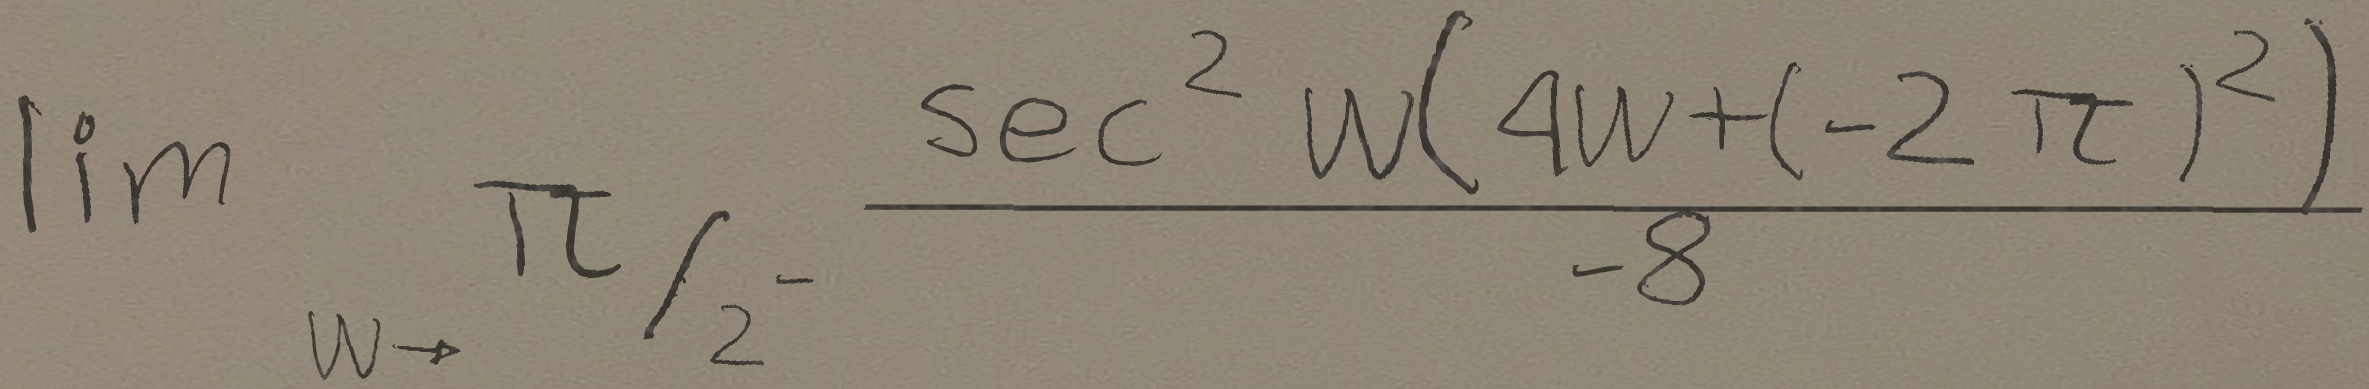 \lim_{w \to \pi/2^-} \frac{\sec^2 w(4w+(-2\pi)^2)}{-8}